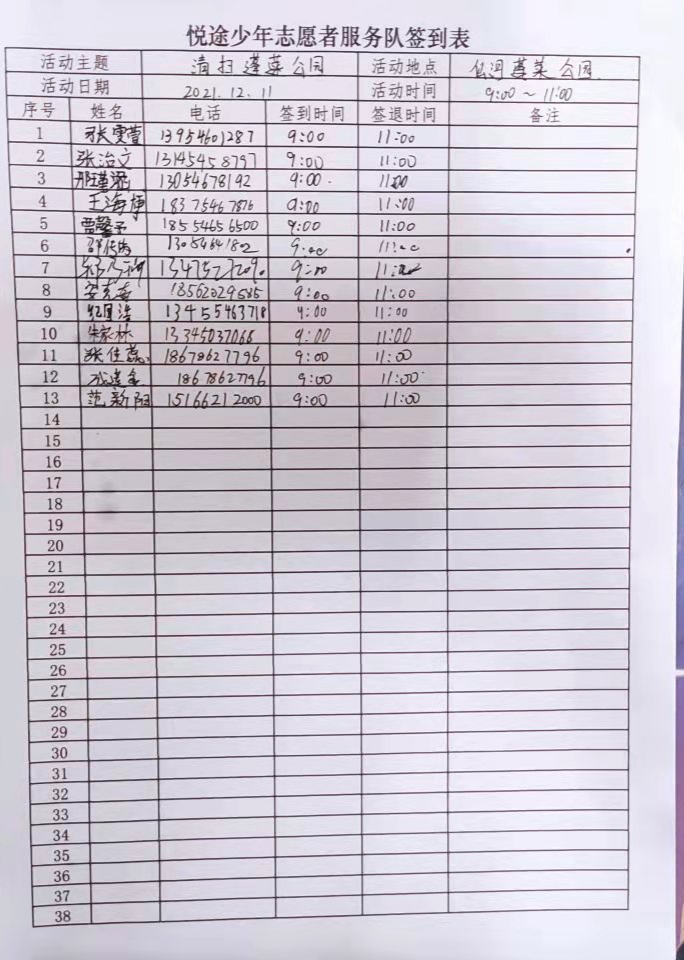 悦途少年志愿者服务队签到表
活动主题 清扫蓬莱公园 活动地点 蓬莱公园
活动日期 2021.12.11 活动时间 9:00～11:00
序号 姓名 电话 签到时间 签退时间 备注
1 张雯萱 13954601287 9:00 11:00
2 张治文 13145458797 9:00 11:00
3 13054678192 9:00 11:00
4 王海 18375467876 9:00 11:00
5 贾馨予 18554656500 9:00 11:00
6 13054641802 9:00 11:00
7 9:00 11:00
8 18562029585 9:00 11:00
9 13455463718 9:00 11:00
10 朱家林 13345037066 9:00 11:00
11 张佳蕊 18678627796 9:00 11:00
12 18678627796 9:00 11:00
13 范新阳 15166212000 9:00 11:00
14
15
16
17
18
19
20
21
22
23
24
25
26
27
28
29
30
31
32
33
34
35
36
37
38